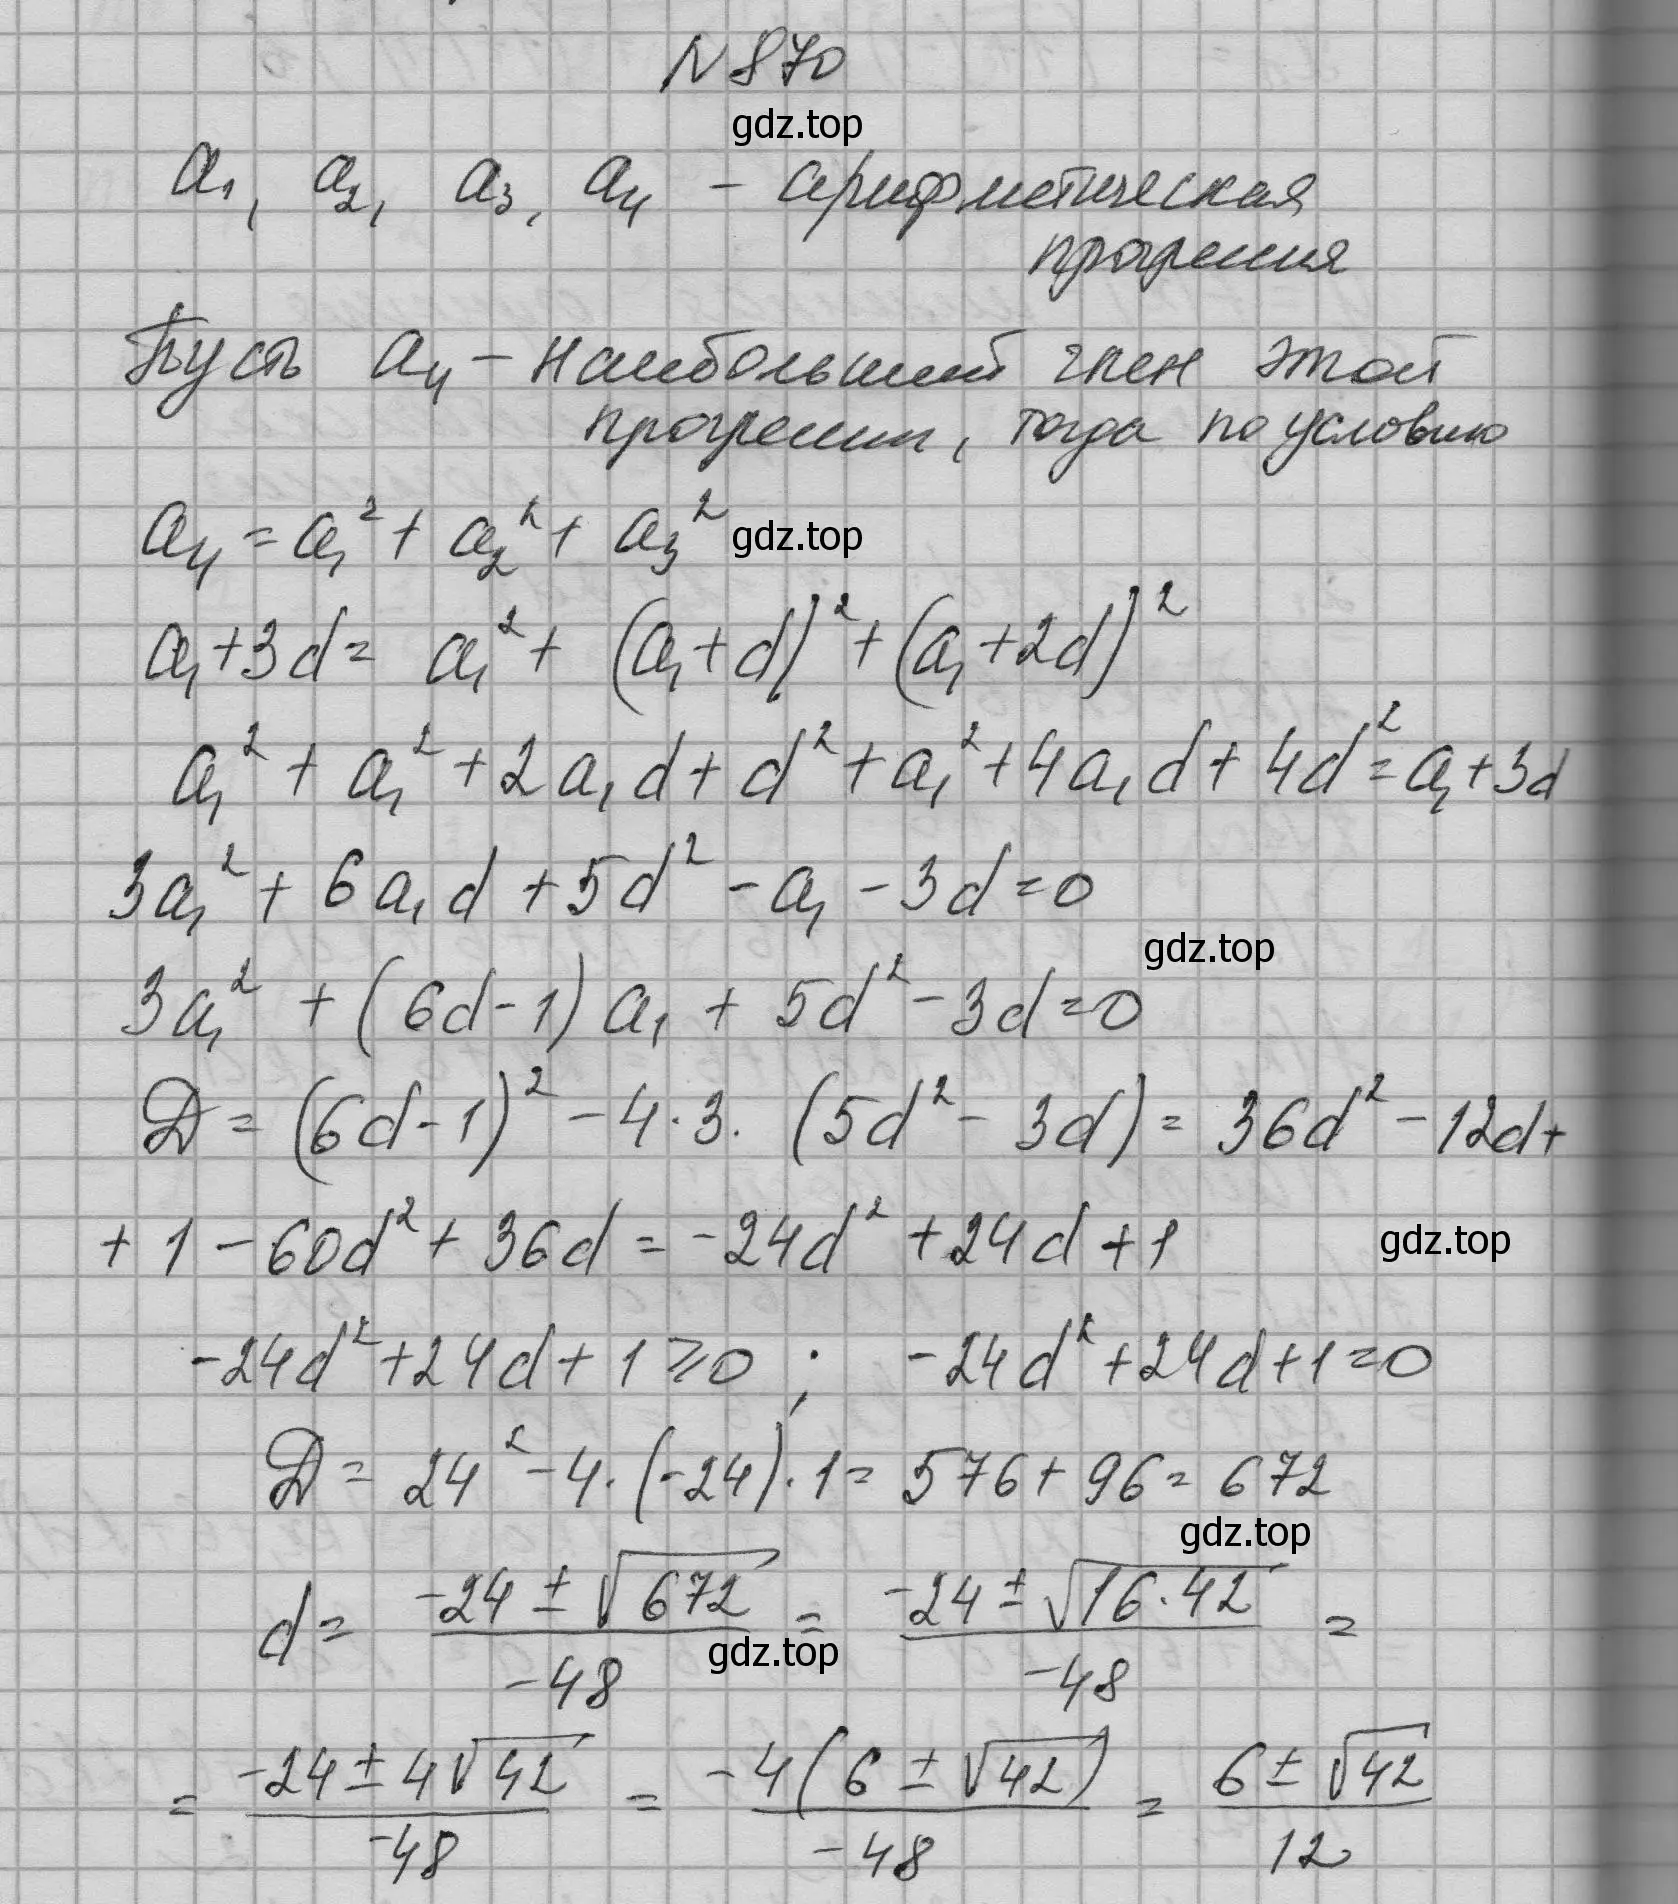 N 870
gdz.top
a₁, a₂, a₃, a₄ – арифметическая
прогрессия
Пусть a₄ – наибольший член этой
прогрессии, тогда по условию
a₄ = a₁² + a₂² + a₃²
gdz.top
a₁ + 3d = a₁² + (a₁ + d)² + (a₁ + 2d)²
a₁² + a₁² + 2a₁d + d² + a₁² + 4a₁d + 4d² = a₁ + 3d
3a₁² + 6a₁d + 5d² - a₁ - 3d = 0
gdz.top
3a₁² + (6d - 1)a₁ + 5d² - 3d = 0
D = (6d - 1)² - 4·3·(5d² - 3d) = 36d² - 12d +
+ 1 - 60d² + 36d = -24d² + 24d + 1
gdz.top
-24d² + 24d + 1 ≥ 0 ; -24d² + 24d + 1 = 0
D = 24² - 4·(-24)·1 = 576 + 96 = 672
gdz.top
d = (-24 ± √672)/(-48) = (-24 ± √(16·42))/(-48) =
gdz.top
= (-24 ± 4√42)/(-48) = (-4(6 ± √42))/(-48) = (6 ± √42)/12